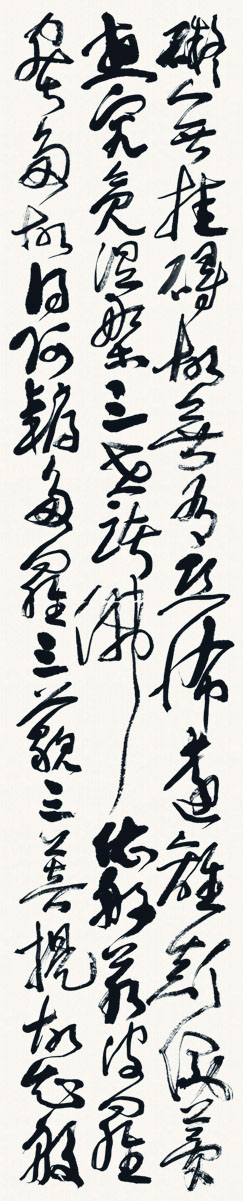 礙無挂礙故無有恐怖遠離顛倒夢
想究竟涅槃三世諸佛依般若波羅
蜜多故得阿耨多羅三藐三菩提故知般